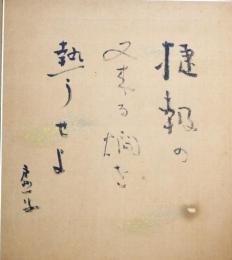 捷報の
又来る燗を
熱うせよ